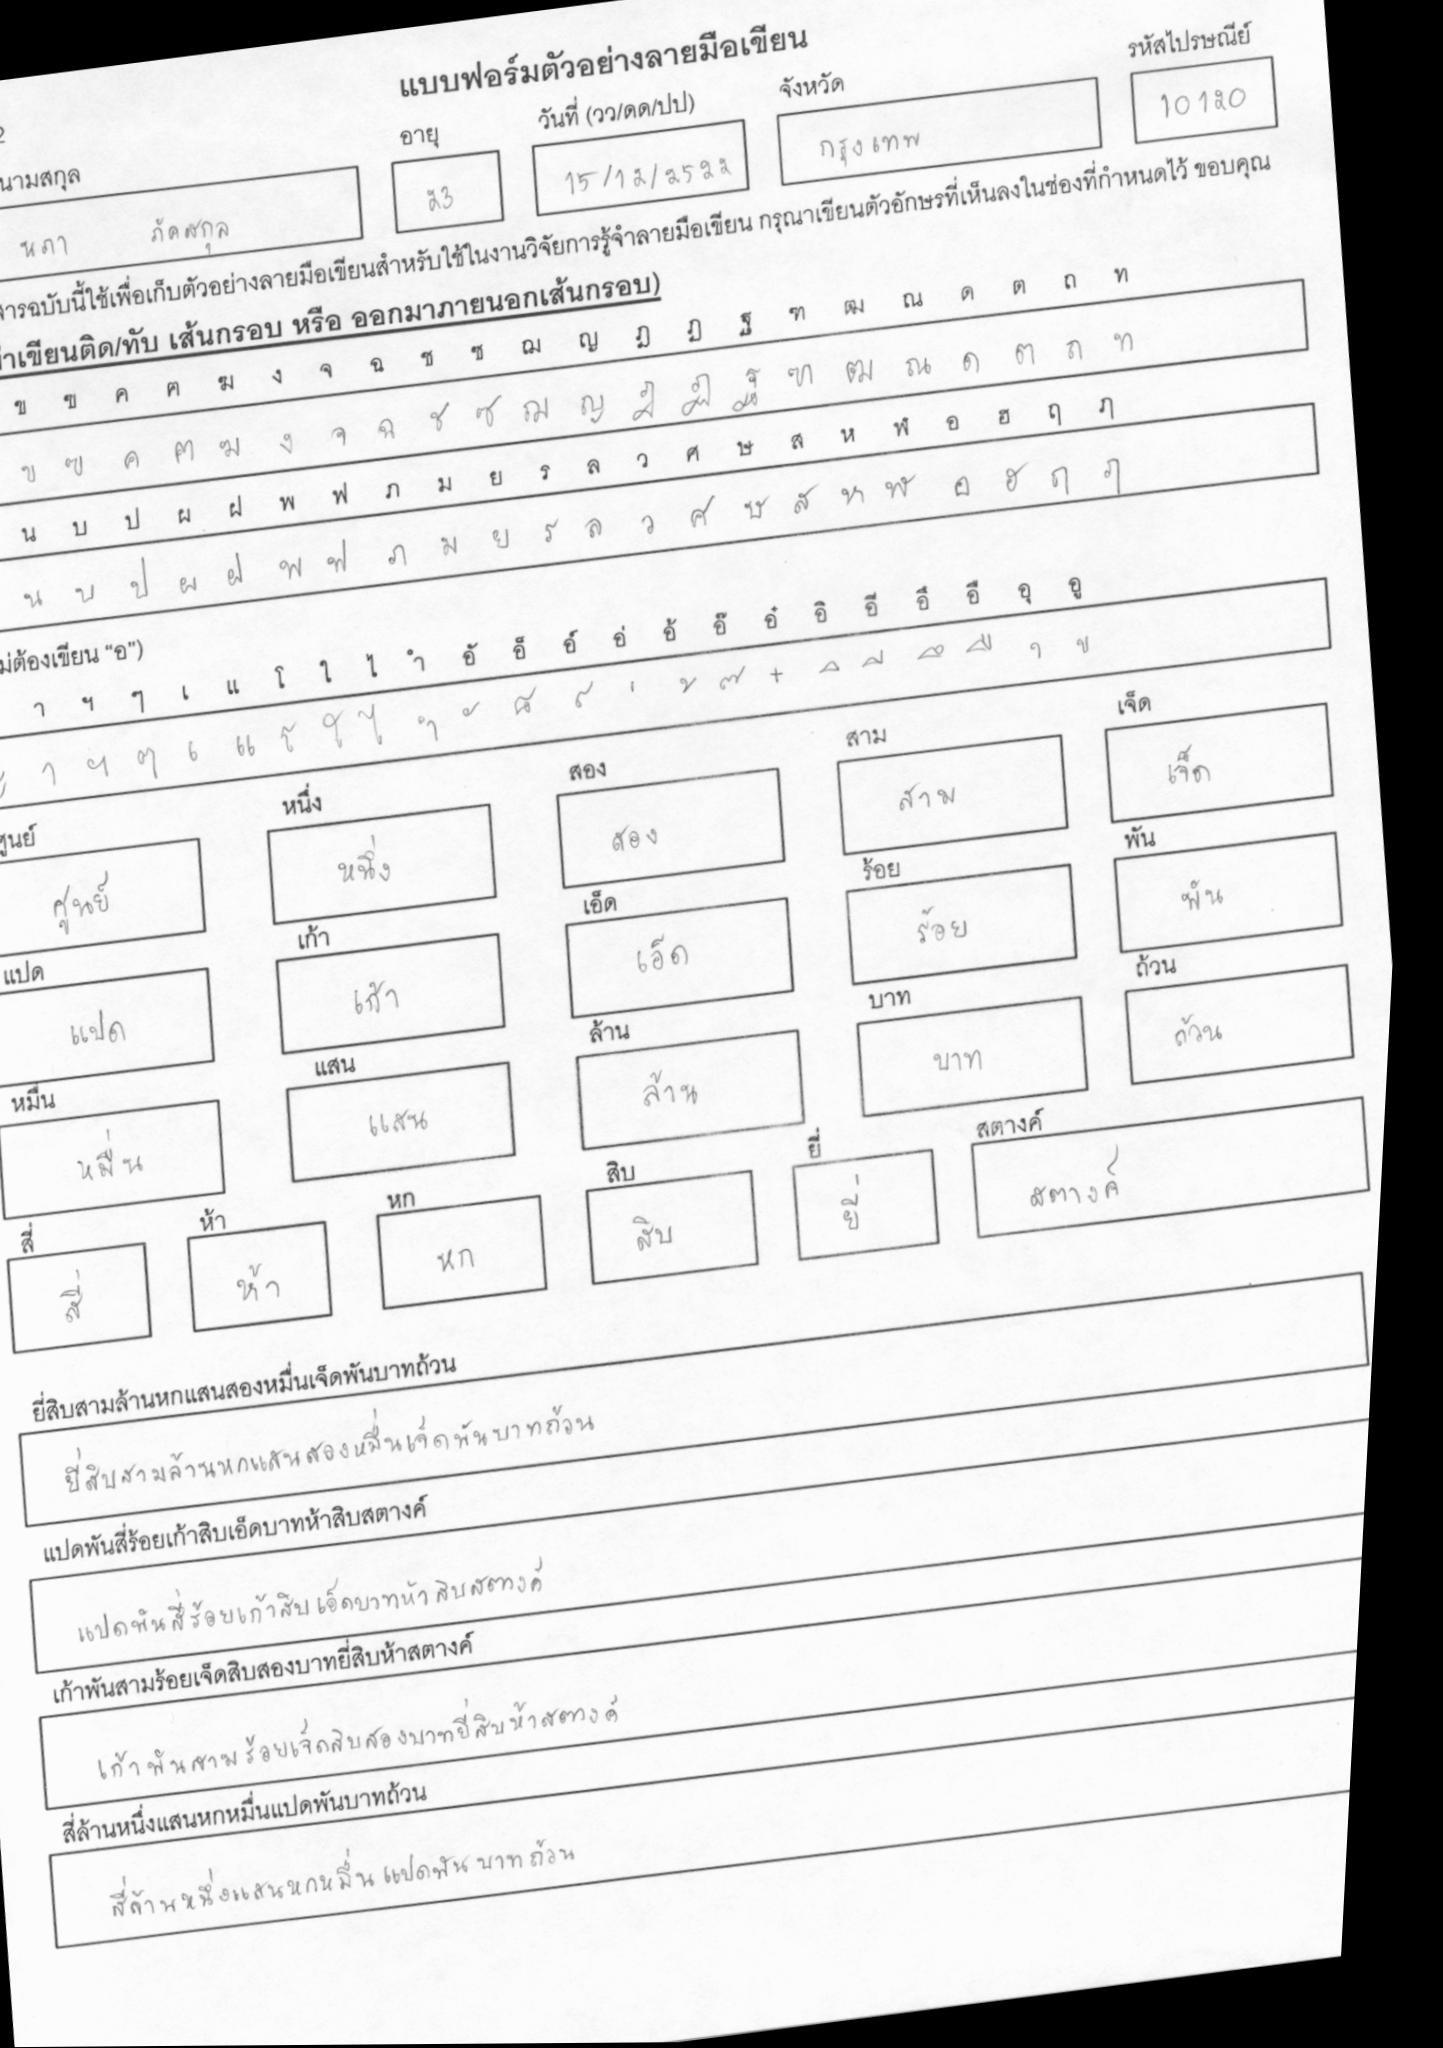 แบบฟอร์มตัวอย่างลายมือเขียน
2
นามสกุล อายุ วันที่ (วว/ดด/ปป) จังหวัด รหัสไปรษณีย์
นภา ภัคสกุล 23 15/12/2522 กรุงเทพ 10120
สารฉบับนี้ใช้เพื่อเก็บตัวอย่างลายมือเขียนสำหรับใช้ในงานวิจัยการรู้จำลายมือเขียน กรุณาเขียนตัวอักษรที่เห็นลงในช่องที่กำหนดไว้ ขอบคุณ
่าเขียนติด/ทับ เส้นกรอบ หรือ ออกมาภายนอกเส้นกรอบ)
ข ฃ ค ฅ ฆ ง จ ฉ ช ซ ฌ ญ ฎ ฏ ฐ ฑ ฒ ณ ด ต ถ ท
ข ฃ ค ฅ ฆ ง จ ฉ ช ซ ฌ ญ ฎ ฏ ฐ ฑ ฒ ณ ด ต ถ ท
น บ ป ผ ฝ พ ฟ ภ ม ย ร ล ว ศ ษ ส ห ฬ อ ฮ ฤ ฦ
น บ ป ผ ฝ พ ฟ ภ ม ย ร ล ว ศ ษ ส ห ฬ อ ฮ ฤ ฦ
ม่ต้องเขียน “อ”)
า ฯ ๆ เ แ โ ใ ไ ำ อั อ็ อ์ อ่ อ้ อ๊ อ๋ อิ อี อึ อื อุ อู
ะ า ฯ ๆ เ แ โ ใ ไ ำ ั ็ ์ ่ ้ ๊ ๋ ิ ี ึ ื ุ ู
ศูนย์ หนึ่ง สอง สาม เจ็ด
ศูนย์ หนึ่ง สอง สาม เจ็ด
แปด เก้า เอ็ด ร้อย พัน
แปด เก้า เอ็ด ร้อย พัน
หมื่น แสน ล้าน บาท ถ้วน
หมื่น แสน ล้าน บาท ถ้วน
สี่ ห้า หก สิบ ยี่ สตางค์
สี่ ห้า หก สิบ ยี่ สตางค์
ยี่สิบสามล้านหกแสนสองหมื่นเจ็ดพันบาทถ้วน
ยี่สิบสามล้านหกแสนสองหมื่นเจ็ดพันบาทถ้วน
แปดพันสี่ร้อยเก้าสิบเอ็ดบาทห้าสิบสตางค์
แปดพันสี่ร้อยเก้าสิบเอ็ดบาทห้าสิบสตางค์
เก้าพันสามร้อยเจ็ดสิบสองบาทยี่สิบห้าสตางค์
เก้าพันสามร้อยเจ็ดสิบสองบาทยี่สิบห้าสตางค์
สี่ล้านหนึ่งแสนหกหมื่นแปดพันบาทถ้วน
สี่ล้านหนึ่งแสนหกหมื่นแปดพันบาทถ้วน